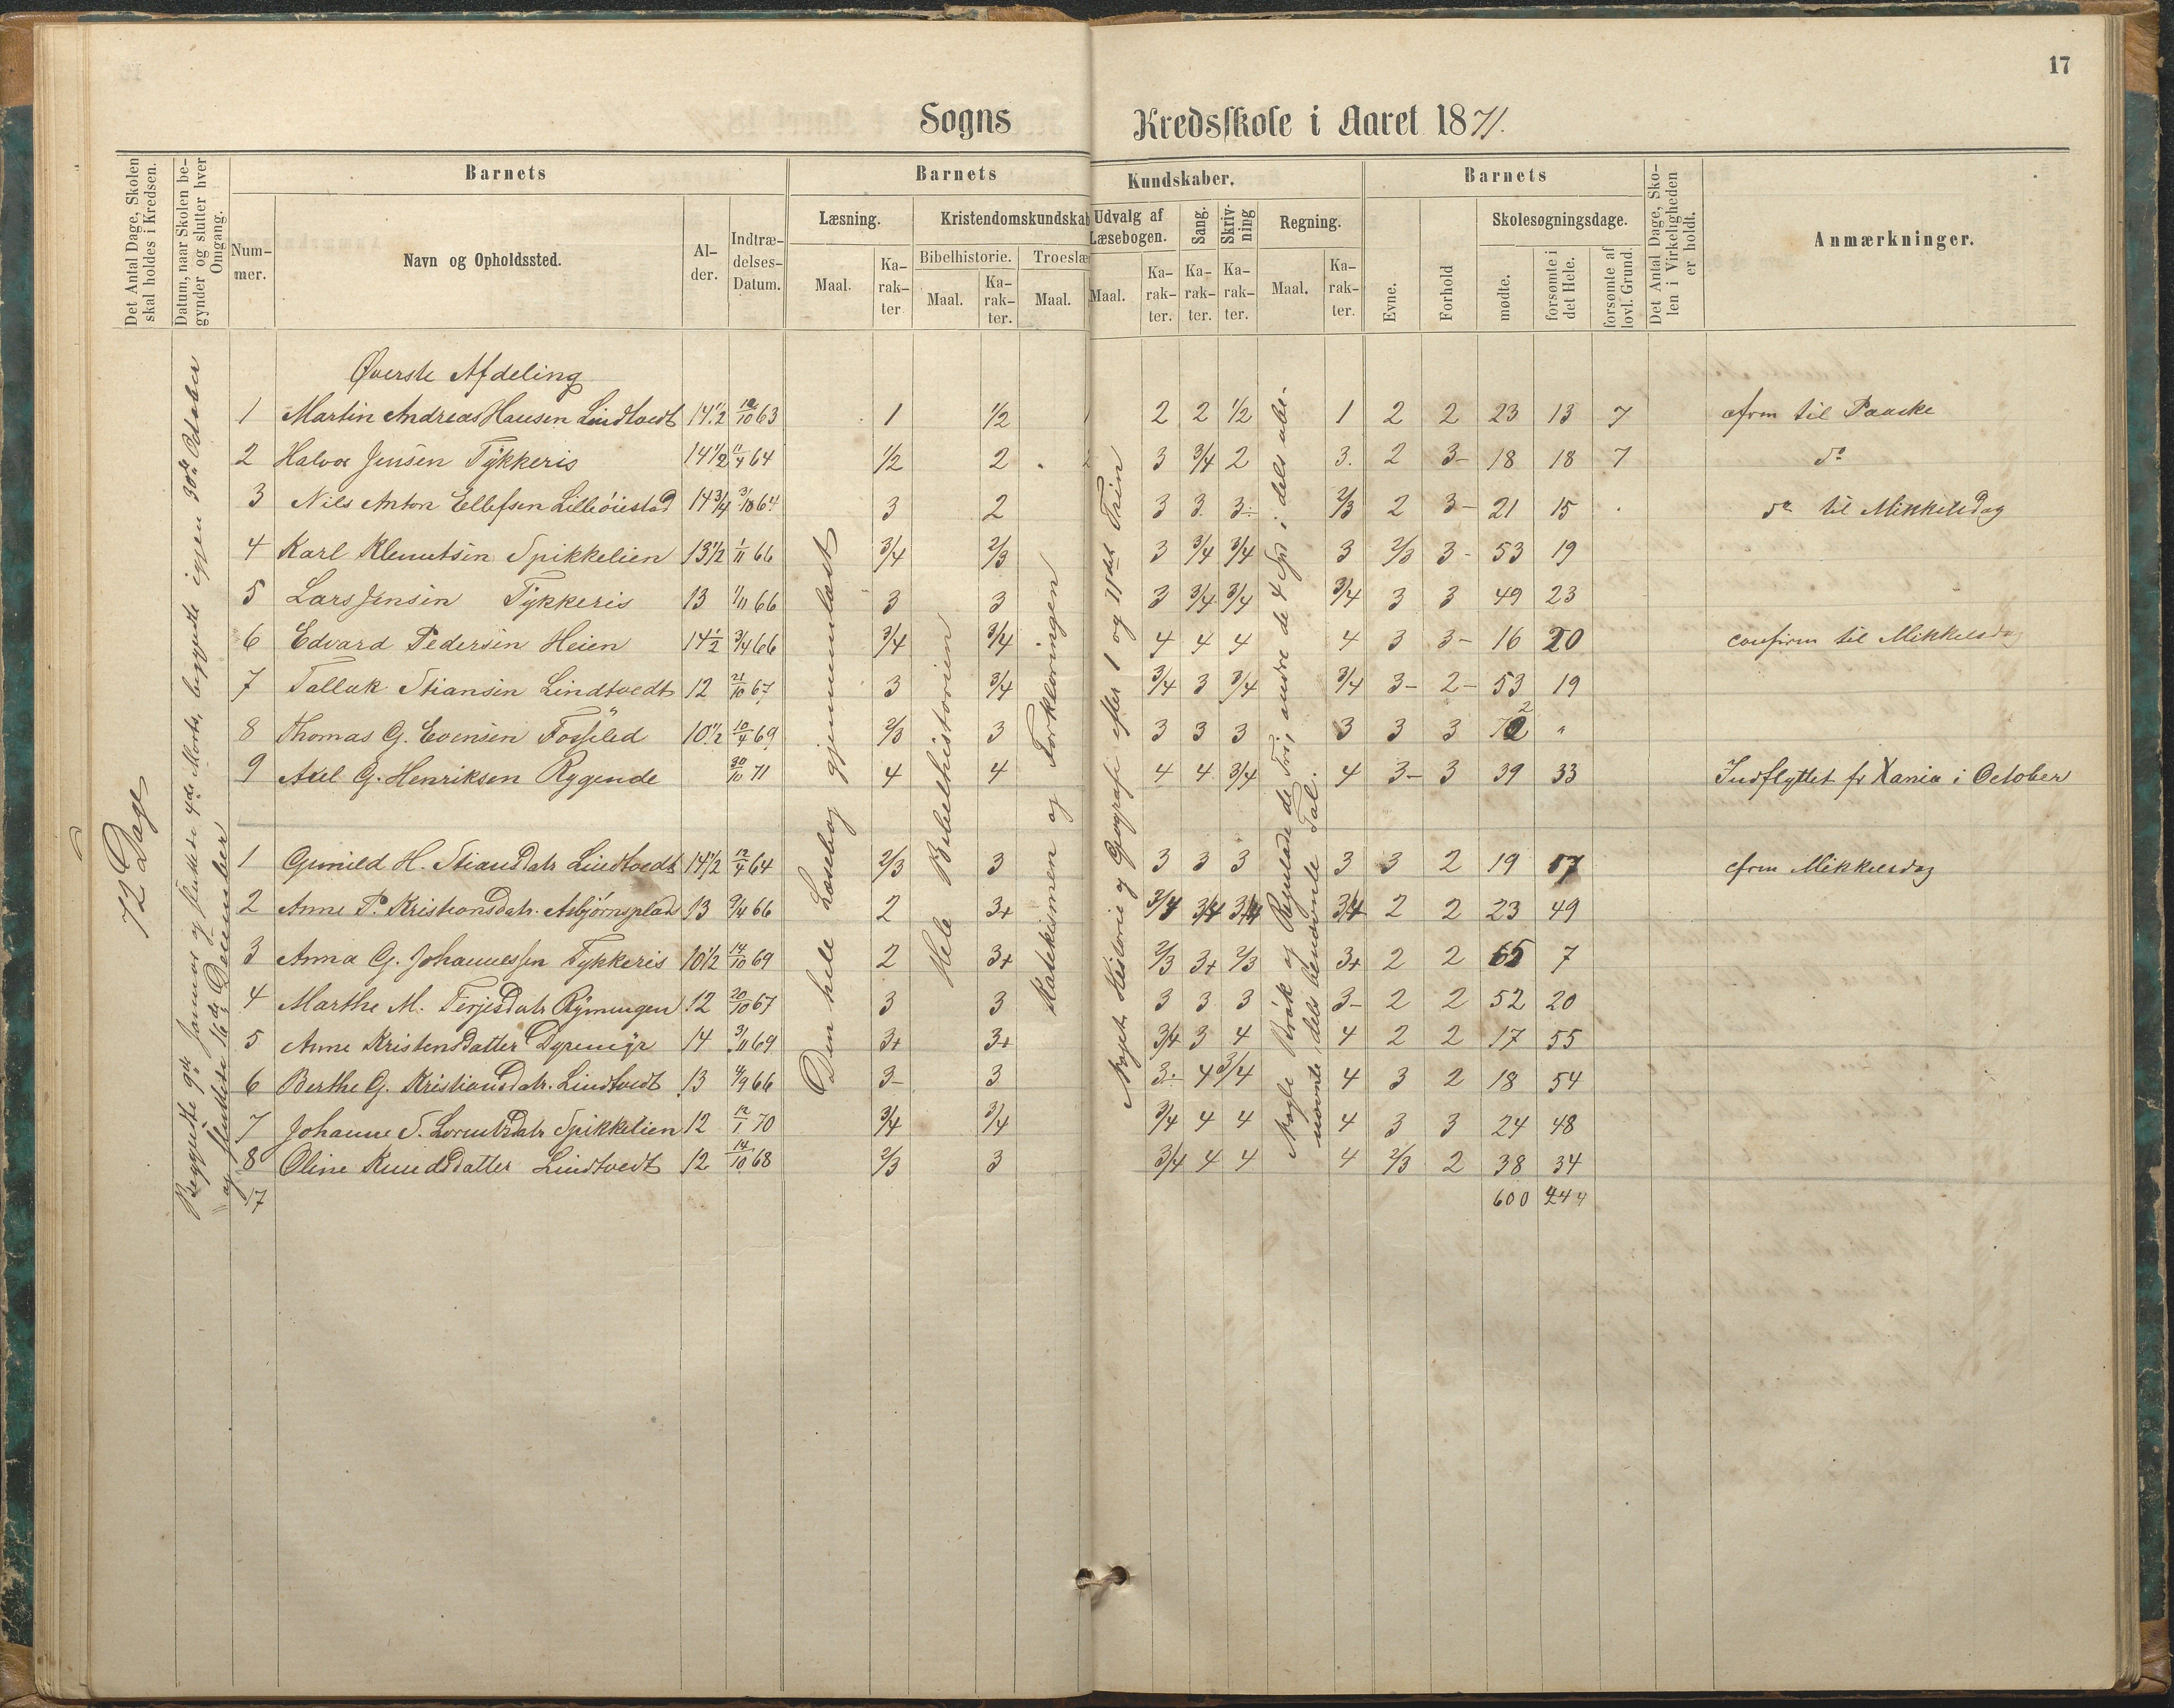 17
Sogns Kredsskole i Aaret 1871.
Det Antal Dage, Skolen skal holdes i Kredsen.
Datum, naar Skolen begynder og slutter hver Omgang.
Barnets
Nummer.
Navn og Opholdssted.
Alder.
Indtrædelses-Datum.
Barnets Kundskaber.
Læsning.
Maal.
Karakter
Kristendomskundskab
Bibelhistorie.
Maal.
Karakter.
Troeslæ
Maal.
Udvalg af Læsebogen.
Maal.
Karakter.
Sang.
Karakter.
Skrivning
Karakter.
Regning.
Maal.
Karakter.
Barnets
Evne.
Forhold
Skolesøgningsdage.
mødte.
forsømte i det Hele.
forsømte af lovl. Grund.
Det Antal Dage, Skolen i Virkeligheden er holdt.
Anmærkninger.
72 Dage
Begyndte 9de Januar og sluttede 4de Marts, begyndte igjen 30te October
og sluttede 16de December
Den hele Læsebog gjennemlæst
Hele Bibelhistorien
Katekismen og Forklaringen
Noget Historie og Geografi efter 1 og 11det Trin
Nogle Brøk og Reguladetri, andre de 4 Sp. i dels ube-
nævnte, dels benævnte Tal.
Øverste Afdeling
1 Martin Andreas Hansen Lindtvedt 14 1/2 10/10 63 1 1/2 2 2 1/2 1 2 2 23 13 7 cfrm til Paaske
2 Halvor Jensen Tykkeris 14 1/2 11/4 64 1/2 2 3 3/4 2 3. 2 3- 18 18 7 do
3 Nils Anton Ellefsen Lilleøiestad 14 3/4 3/10 64 3 2 3 3 3- 2/3 2 3- 21 15 do til Mikkelsdag
4 Karl Klemetsen Spikkelien 13 1/2 1/11 66 3/4 2/3 3 3/4 3/4 3 2/3 3- 53 19
5 Lars Jensen Tykkeris 13 1/11 66 3 3 3 3/4 3/4 3/4 3 3 49 23
6 Edvard Pedersen Heien 14 1/2 3/4 66 3/4 3/4 4 4 4 4 3 3- 16 20 confirm til Mikkelsdag
7 Tallak Stiansen Lindtvedt 12 21/10 67 3 3/4 3/4 3 3/4 3/4 3- 2- 53 19
8 Thomas G. Evensen Fosselied 10 1/2 10/4 69 2/3 3 3 3 3 3 3 3 72 "
9 Axel G. Henriksen Rygende 30/10 71 4 4 4 4 3/4 4 3- 3 39 33 Indflyttet fr Xania i October
1 Gunild H. Stiansdatr Lindtvedt 14 1/2 12/4 64 2/3 3 3 3 3 3 3 2 19 57 cfrm Mikkelsdag
2 Anne P. Kristiansdatr. Asbjørnsplads 13 9/4 66 2 3+ 3/4 3/4 3/4 3/4 2 2 23 49
3 Anna G. Johannessen Tykkeris 10 1/2 14/10 69 2 3+ 2/3 3+ 2/3 3+ 2 2 65 7
4 Marthe M. Terjesdatr Rømyngen 12 20/10 67 3 3 3 3 3 3- 2 2 52 20
5 Anne Kristensdatter Dyremyr 14 3/11 69 3+ 3+ 3/4 3 4 4 2 2 17 55
6 Berthe G. Kristiansdatr. Lindtvedt 13 4/9 66 3- 3 3- 4 3/4 4 3 2 18 54
7 Johanne S. Lorentzdatr Spikkelien 12 12/1 70 3/4 3/4 3/4 4 4 4 3 3 24 48
8 Oline Knudsdatter Lindtvedt 12 14/10 68 2/3 3 3/4 4 4 4 2/3 2 38 34
17 600 444